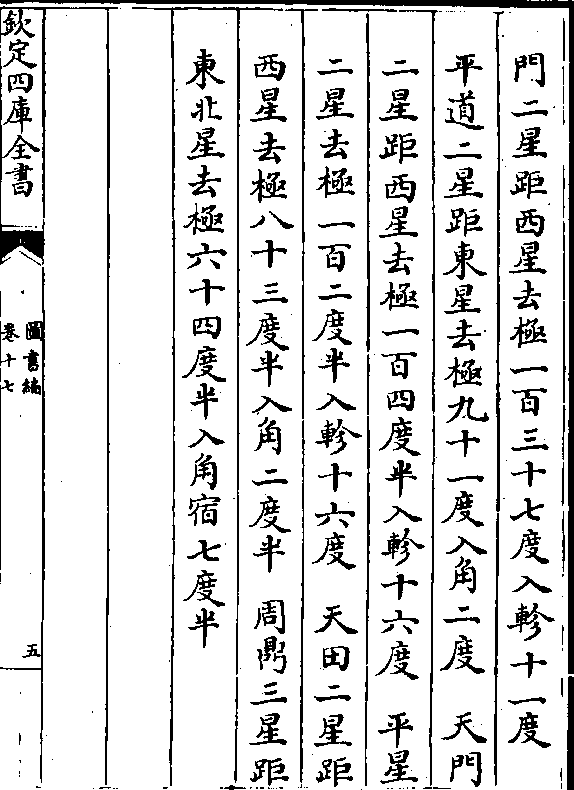 門二星距西星去極一百三十七度入軫十一度
平道二星距東星去極九十一度入角二度　天門
二星距西星去極一百四度半入軫十六度　平星
二星去極一百二度半入軫十六度　天田二星距
西星去極八十三度半入角二度半　周鼎三星距
東北星去極六十四度半入角宿七度半
欽定四庫全書
圖書編
卷十七
五